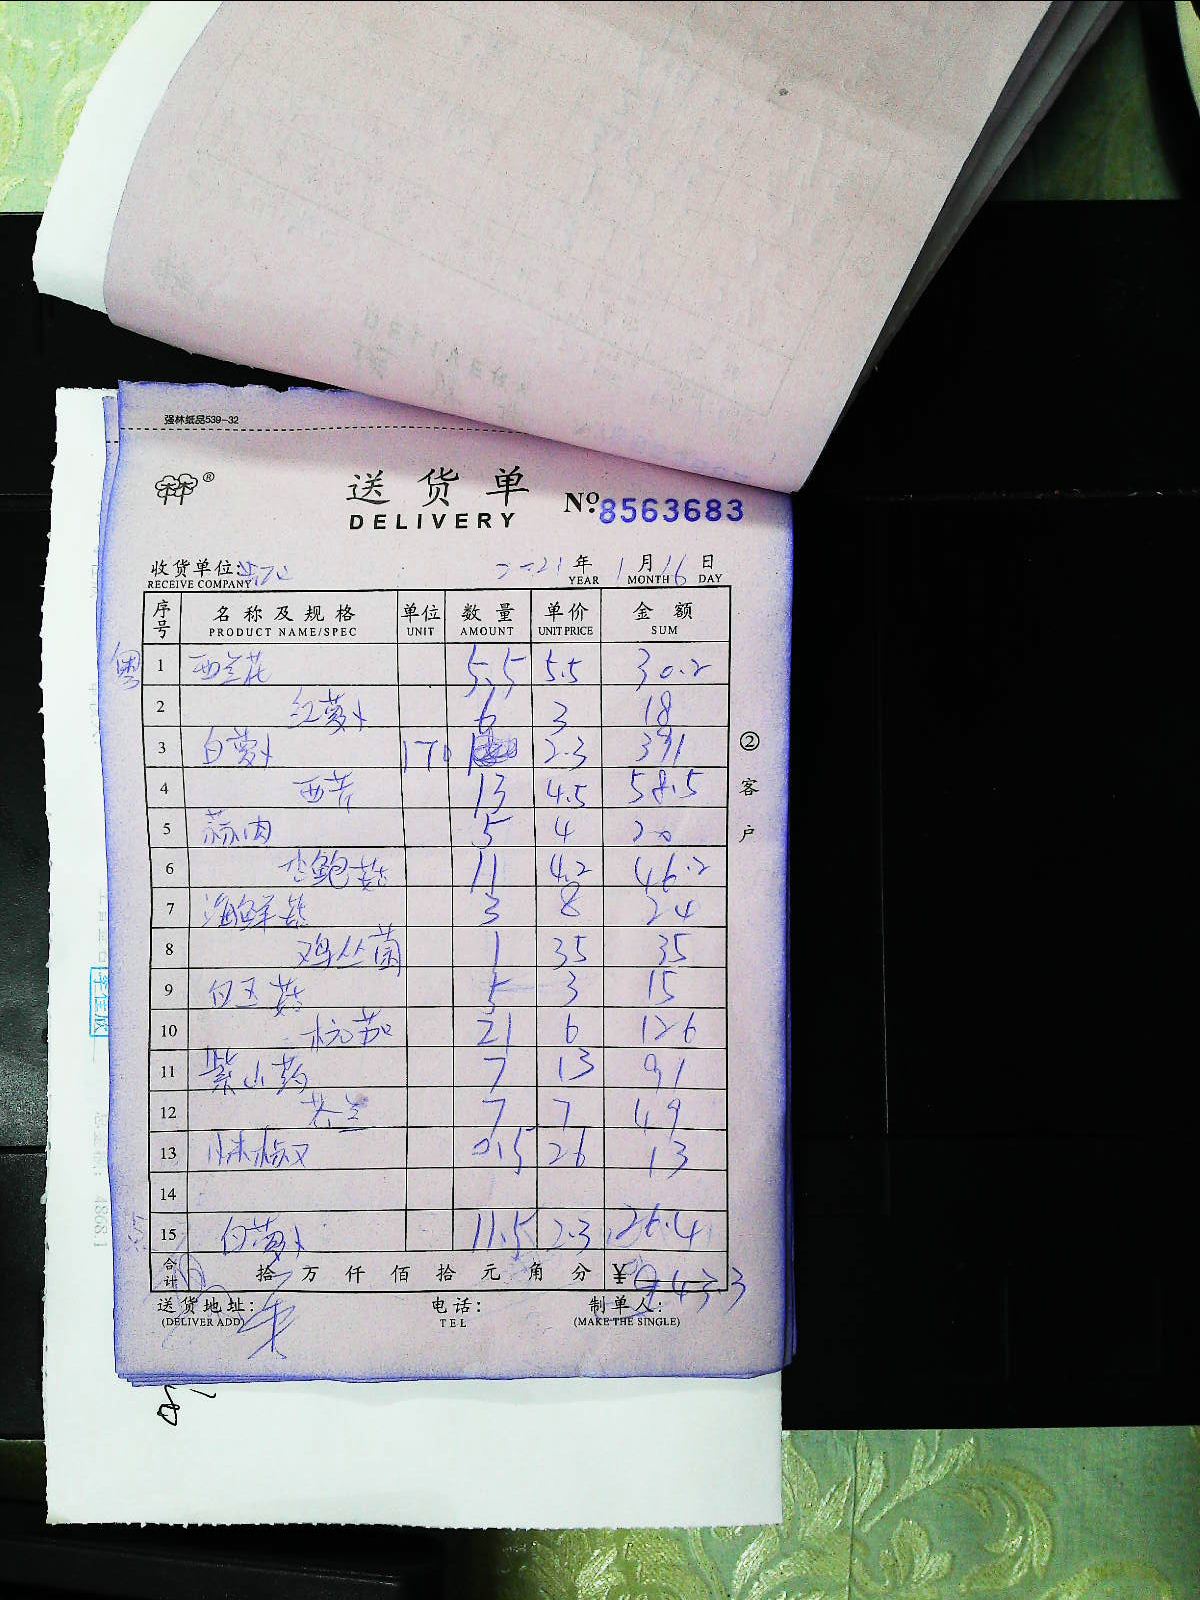 强林纸品539-32
®
送货单
DELIVERY
Nº 8563683
收货单位:
RECEIVE COMPANY
2021年 1月16日
YEAR MONTH DAY
序号 名称及规格 单位 数量 单价 金额
PRODUCT NAME/SPEC UNIT AMOUNT UNIT PRICE SUM
粤 1 西兰花 5.5 5.5 30.2
2 红萝卜 6 3 18
3 白萝卜 170 2.3 391
4 西芹 13 4.5 58.5
5 蒜肉 5 4 20
6 杏鲍菇 11 4.2 46.2
7 海鲜菇 3 8 24
8 鸡丛菌 1 35 35
9 白玉菇 5 3 15
10 杭茄 21 6 126
11 紫山药 7 13 91
12 芥兰 7 7 49
13 0.5 26 13
14
15 白萝卜 11.5 2.3 26.4
合计 拾万仟佰拾元角分 ¥ 943.3
送货地址: 电话: 制单人:
(DELIVER ADD) TEL (MAKE THE SINGLE)
②客户
4868.1